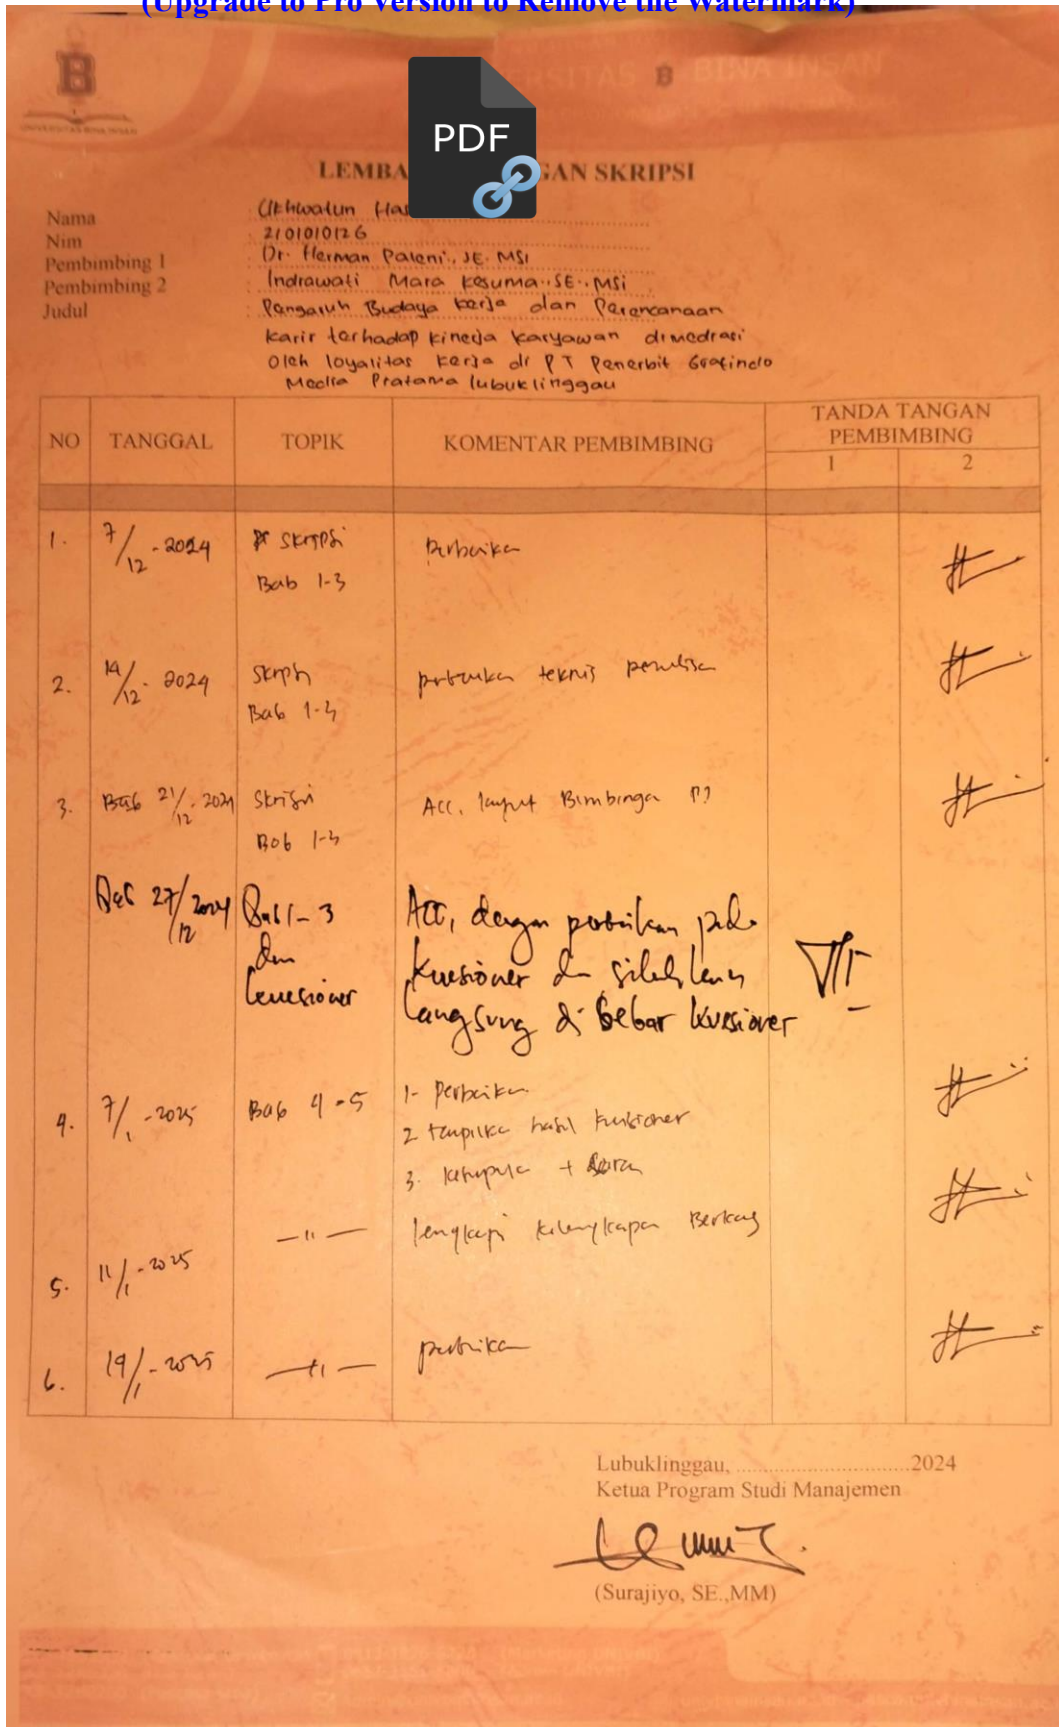 (Upgrade to Pro Version to Remove the Watermark)
B
UNIVERSITAS BINA INSAN
ERSITAS B BINA INSAN
PDF
LEMBA GAN SKRIPSI
Nama : Ukhwatun Has
Nim : 2101010126
Pembimbing 1 : Dr. Herman Paleni., SE. MSi
Pembimbing 2 : Indrawati Mara Kesuma., SE., MSi
Judul : Pengaruh Budaya Kerja dan Perencanaan
Karir terhadap Kinerja Karyawan dimediasi
Oleh loyalitas Kerja di PT Penerbit Grafindo
Media Pratama lubuklinggau
NO TANGGAL TOPIK KOMENTAR PEMBIMBING TANDA TANGAN PEMBIMBING
1 2
1. 7/12 - 2024 Skripsi Perbaikan
Bab 1-3
2. 14/12 - 2024 Skripsi perbaikan teknis penulisan
Bab 1-3
3. 21/12 - 2024 Skripsi Acc, lanjut Bimbingan P1
Bab 1-3
27/12 2024 Bab 1-3 Acc, dengan perbaikan pada
dan kuesioner dan silahkan
kuesioner langsung di sebar kuesioner
4. 7/1 - 2025 Bab 4-5 1. Perbaikan
2 tampilkan hasil kuisioner
3. kesimpulan + Saran
5. 11/1 - 2025 — 11 — lengkapi kelengkapan Berkas
6. 19/1 - 2025 — 11 — perbaikan
Lubuklinggau, ..............................2024
Ketua Program Studi Manajemen
(Surajiyo, SE.,MM)